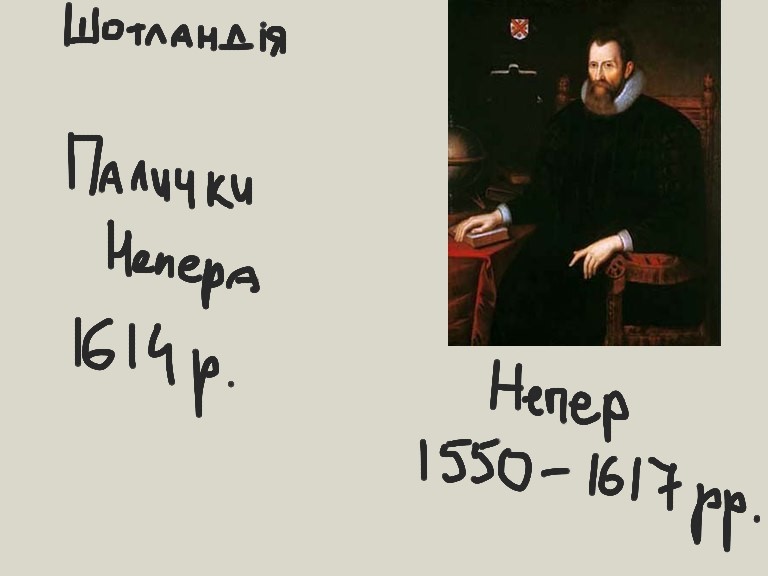 Шотландія
Палички
Непера
1614 р.
Непер
1550-1617 рр.